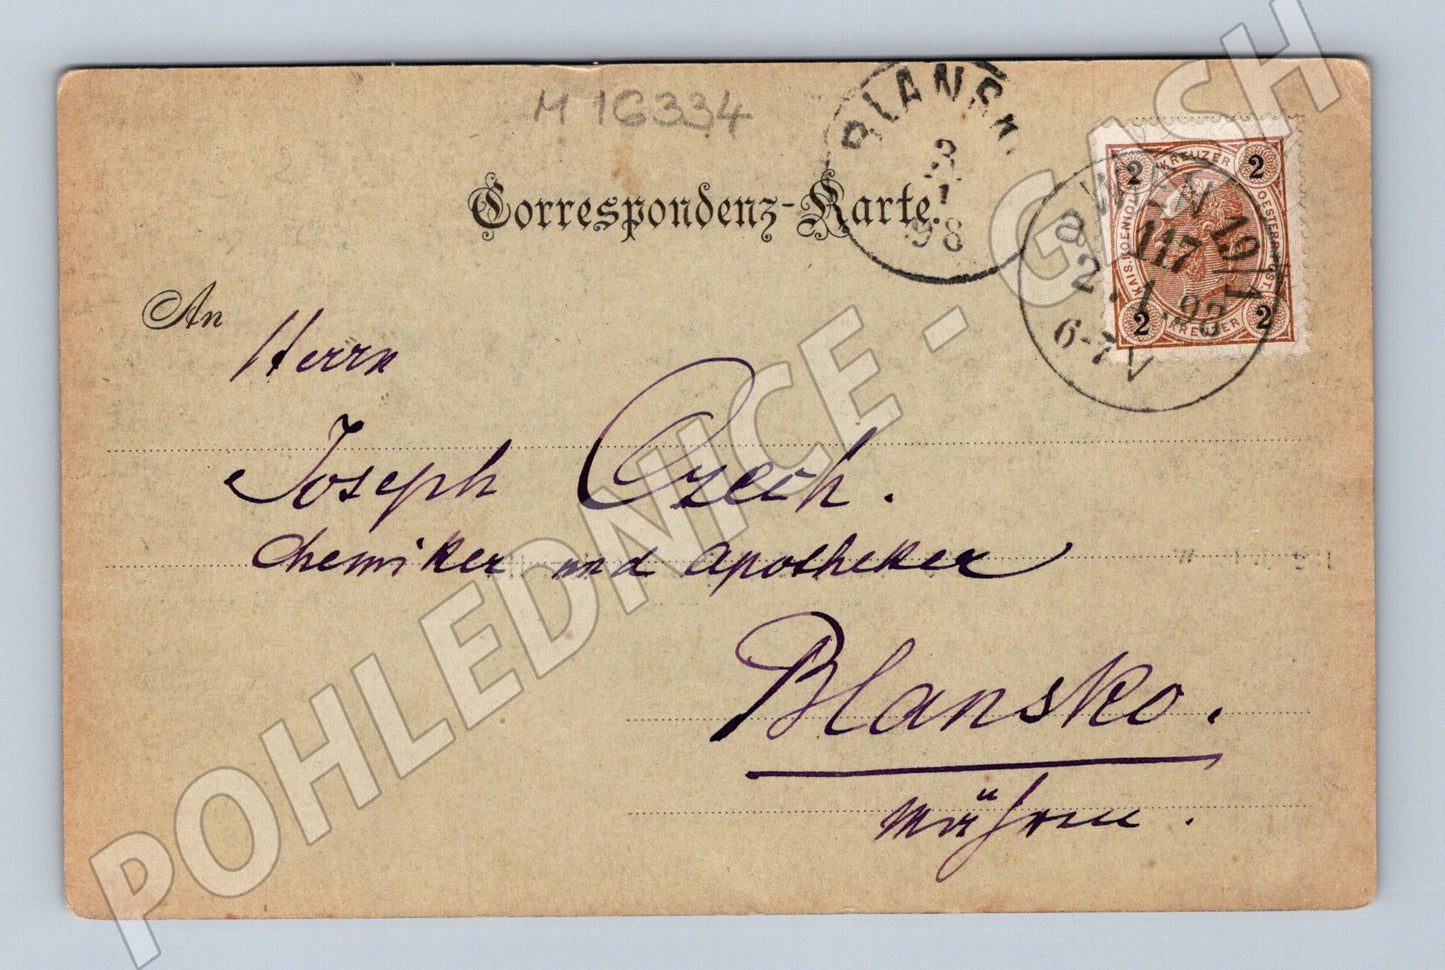 M 16334
Correspondenz-Karte.
BLANSK
3
1
98
2 KREUZER 2
KAIS. KOENIGL. OESTERR. POST
2 KREUZER 2
WIEN 19/1
a 117
2.1.98
6-7 V
An
Herrn
Joseph Czech.
Chemiker und Apotheker
Blansko.
Mähren.
POHLEDNICE - GASH